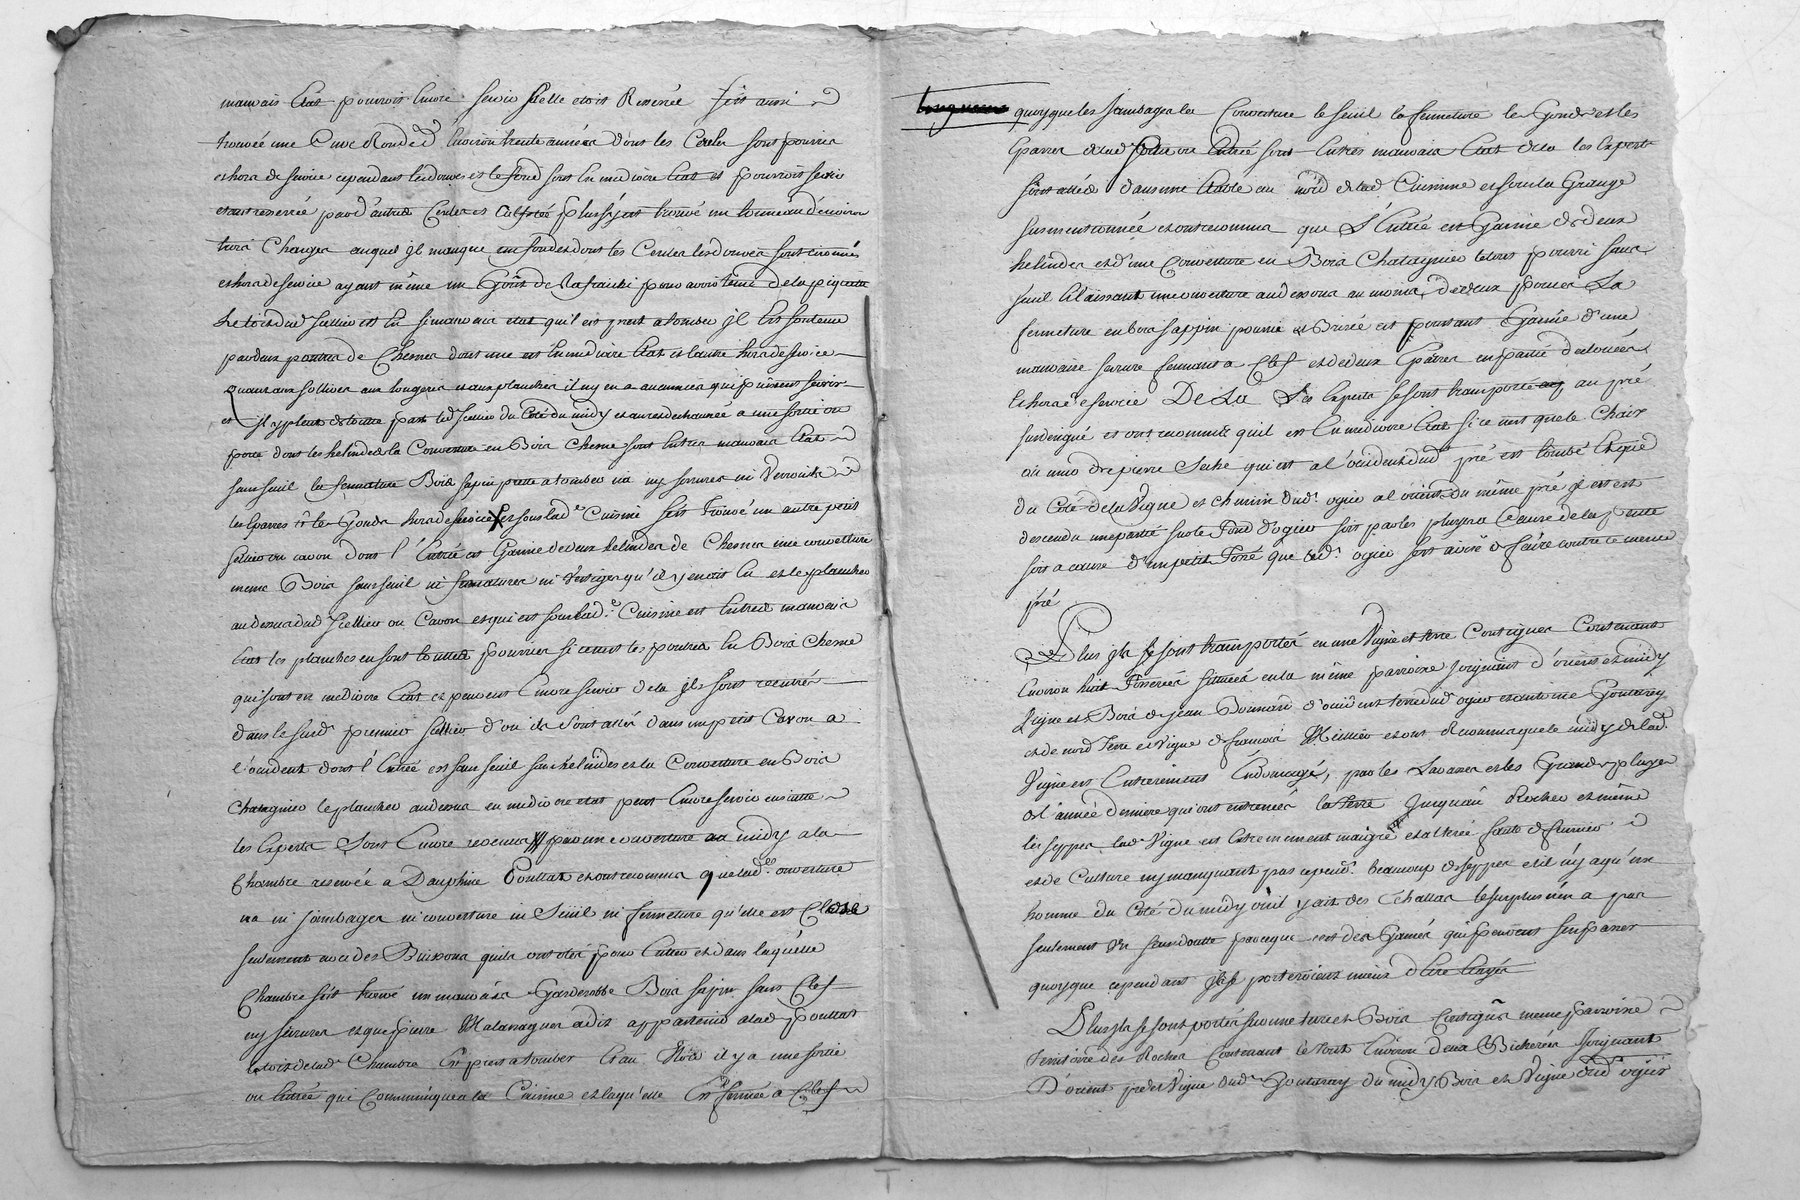 mauvais Etat pourroit Encore servir sy elle etoit Resserrée s'est aussi
trouvée une Cuve Ronde d'Environ trente années dont les Cercles sont pourris
et hors de service cependant les douves et le fond sont En mediocre Etat et pourroit servir
etant resserrée par d'autres Cercles et plus s'y est trouvé un tonneau d'environ
trois Charges auquel il manque un fond et dont les Cercles les douves sont
et hors de service ayant même un Goût de pour avoir tenu de la piquette
Le toit dud. Sellier est En si mauvais etat qu'il est prest a tomber jl Est soutenu
par deux poutres de Chesnes dont une est En mediocre Etat et l'autre hors de service
Quant aux sollives aux longerons et aux planches il n'y en a aucunes qui puissent servir
et jl y pleut de toutte part led. Sellier du Coté du midy et au rez de chaussée a une sortie ou
porte dont les helindes la Couverture en Bois Chesne sont En tres mauvais Etat
sans seuil la fermeture Bois sapin prette a tomber na ny serrures ni Verrouils
les Eparres et les Gonds hors de service et sous lad.e Cuisine s'est Trouvé un autre petit
sellier ou cavon dont l'Entrée est Garnie de deux helindes de Chesnes une couverture
meme Bois sans seuil ni fermatures ni Vestiges qu'il y en ait Eu et le plancher
au dessus dud. Sellier ou Cavon et qui est sous lad.e Cuisine est En tres mauvais
Etat les planches en sont touttes pourries si ce n'est les poutres En Bois Chesne
qui sont en mediocre Etat et peuvent Encore servir de la jls sont rentrés
dans le susd. premier Sellier d'ou ils sont allés dans un petit Cavon a
l'occident dont l'Entrée est sans seuil sur helindes et la Couverture en Bois
Chatagnier le plancher au dessus en mediocre etat peut Encore servir ensuitte
les Experts sont Encore revenus par une ouverture au midy a la
Chambre reservée a Dauphine Pouttat et ont reconnu que lad.e ouverture
na ni jambages ni couverture ni Seüil ni fermeture qu'elle est Close
seulement avec des Buissons qu'ils ont otés pour Entrer et dans laquelle
Chambre s'est trouvé un mauvais Garderobbe Bois sapin sans Clef
ny serrures et que pierre Malanagues a dit appartenir a lad. Pouttat
le toit de lad. Chambre Est prest a tomber Et au Nord il y a une sortie
ou Entrée qui Communique a la Cuisine et laquelle Est fermée a Clef
quoyque les jambages la Couverture le seuil la fermeture les Gonds et les
Eparres de lad. porte ou Entrée sont En tres mauvais Etat de la les Experts
sont allés dans une Etable au nord de lad. Cuisine et sous la Grange
susmentionnée et ont reconnu que L'Entrée est Garnie de deux
helindes et d'une Couverture en Bois Chatagnier le tout pourri sans
seuil Et laissant une ouverture au dessous au moins de deux pouces La
fermeture en bois sappin pourrie et Brisée est pourtant Garnie d'une
mauvaise serrure fermant a Clef et de deux Eparres en partie declouées
Et hors de service De La Les Experts se sont transportés au pré
susdesigné et ont reconnu qu'il est En mediocre Etat si ce n'est que le Chaix
ou mur de pierre Seche qui est a l'occident dud. pré est tombé Et que
du Coté de la Vigne et chemin dud. ogier al orient du même pré jl en est
descendu une partie sur le Fond d'ogier soit par les pluyes a Cause de la pente
soit a cause d'un petit Fossé que led. ogier s'est avisé de faire contre ce meme
pré
Plus jls se sont transportés en une Vigne et terre Contigues Contenant
Environ huit Fosserées situées en la même parroisse joignant d'orient et midy
Vigne et Bois de jean Bonnard d'occident terre dud. ogier et antoine Goutarey
et de nord Terre et Vigne de francois Meillier et ont Reconnu que le midy de lad.
Vigne est Entierement Endomagé, par les Lavasses et les Grandes pluyes
de l'année derniere qui ont entrainés la terre Jusqu'au Rocher et même
les seppes lad. Vigne est Extremement maigre et alterée faute de fumier
et de Culture ny manquant pas cepend.t beaucoup de seppes et il n'y a qu'un
homme du Coté du midy ou il y ait des Echallas le surplus n'en a pas
seulement Un sans doutte parceque c'est des Gamés qui peuvent s'en passer
quoyque cependant jls s'en porteroient mieux d'Etre Etayés
Plus jls se sont portés sur une terre et Bois Contigus meme parroisse
Territoire des Roches Contenant le tout Environ deux Bicherées joignant
D'orient pré et Vigne dud. Goutarey du midy Bois et Vigne dud. ogier